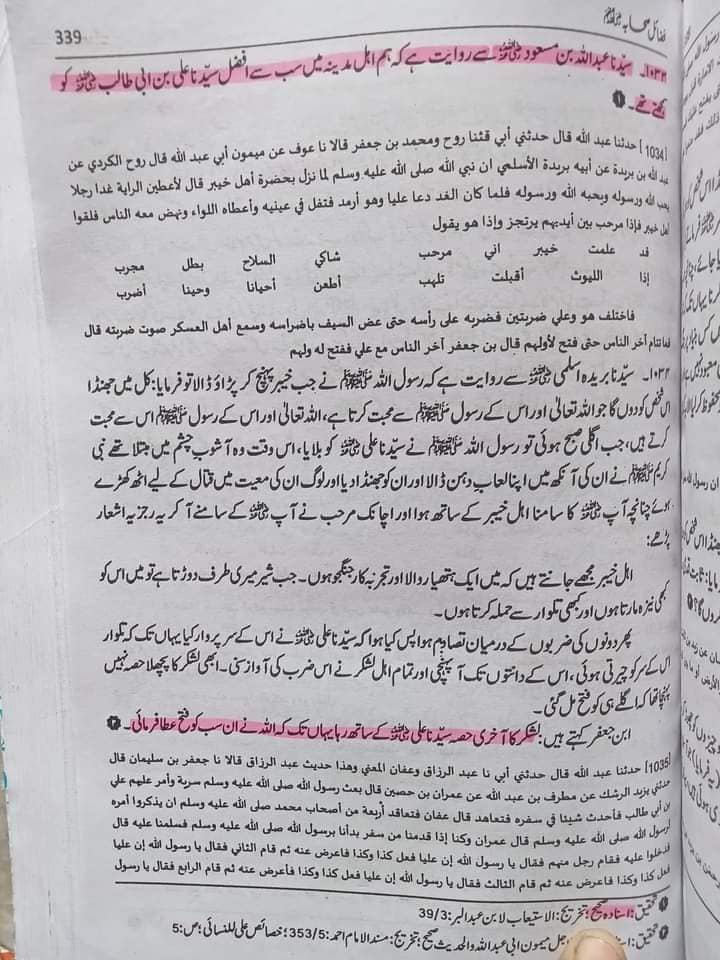 339
فضائل صحابہ ﷢
۱۰۳۳۔ سیّدنا عبداللہ بن مسعود ﷜ سے روایت ہے کہ ہم اہل مدینہ میں سب سے افضل سیّدنا علی بن ابی طالب ﷜ کو
رکھتے تھے۔ ❶
[1034] حدثنا عبد الله قال حدثني أبي قثنا روح ومحمد بن جعفر قالا نا عوف عن ميمون أبي عبد الله قال روح الكردي عن
عبد الله بن بريدة عن أبيه بريدة الأسلمي ان نبي الله صلى الله عليه وسلم لما نزل بحضرة أهل خيبر قال لأعطين الراية غدا رجلا
يحب الله ورسوله ويحبه الله ورسوله فلما كان الغد دعا عليا وهو أرمد فتفل في عينيه وأعطاه اللواء ونهض معه الناس فلقوا
أهل خيبر فإذا مرحب بين أيديهم يرتجز وإذا هو يقول
قد علمت خيبر اني مرحب شاكي السلاح بطل مجرب
إذا الليوث أقبلت تلهب أطعن أحيانا وحينا أضرب
فاختلف هو وعلي ضربتين فضربه على رأسه حتى عض السيف باضراسه وسمع أهل العسكر صوت ضربته قال
فما تتام آخر الناس حتى فتح لأولهم قال بن جعفر آخر الناس مع علي ففتح له ولهم
۱۰۳۴۔ سیّدنا بریدہ اسلمی ﷜ سے روایت ہے کہ رسول اللہ ﷺ نے جب خیبر پہنچ کر پڑاؤ ڈالا تو فرمایا: کل میں جھنڈا
اس شخص کو دوں گا جو اللہ تعالیٰ اور اس کے رسول ﷺ سے محبت کرتا ہے، اللہ تعالیٰ اور اس کے رسول ﷺ اس سے محبت
کرتے ہیں، جب اگلی صبح ہوئی تو رسول اللہ ﷺ نے سیّدنا علی ﷜ کو بلایا، اس وقت وہ آشوب چشم میں مبتلا تھے نبی
کریم ﷺ نے ان کی آنکھ میں اپنا لعاب دہن ڈالا اور ان کو جھنڈا دیا اور لوگ ان کی معیت میں قتال کے لیے اٹھ کھڑے
ہوئے چنانچہ آپ ﷜ کا سامنا اہل خیبر کے ساتھ ہوا اور اچانک مرحب نے آپ ﷜ کے سامنے آ کر یہ رجزیہ اشعار
پڑھے:
اہل خیبر مجھے جانتے ہیں کہ میں ایک ہتھیار والا اور تجربہ کار جنگجو ہوں۔ جب شیر میری طرف دوڑتا ہے تو میں اس کو
کبھی نیزہ مارتا ہوں اور کبھی تلوار سے حملہ کرتا ہوں۔
پھر دونوں کی ضربوں کے درمیان تصادم ہوا پس کیا ہوا کہ سیّدنا علی ﷜ نے اس کے سر پر وار کیا یہاں تک کہ تلوار
اس کے سر کو چیرتی ہوئی، اس کے دانتوں تک آ پہنچی اور تمام اہل لشکر نے اس ضرب کی آواز سنی۔ ابھی لشکر کا پچھلا حصہ نہیں
پہنچا تھا کہ اگلے ہی کو فتح مل گئی۔
ابن جعفر کہتے ہیں: لشکر کا آخری حصہ سیّدنا علی ﷜ کے ساتھ رہا یہاں تک کہ اللہ نے ان سب کو فتح عطا فرمائی۔ ❷
[1035] حدثنا عبد الله قال حدثني أبي نا عبد الرزاق وعفان المعني وهذا حديث عبد الرزاق قالا نا جعفر بن سليمان قال
حدثني يزيد الرشك عن مطرف بن عبد الله عن عمران بن حصين قال بعث رسول الله صلى الله عليه وسلم سرية وأمر عليهم علي
بن أبي طالب فأحدث شيئا في سفره فتعاهد قال عفان فتعاقد أربعة من أصحاب محمد صلى الله عليه وسلم ان يذكروا أمره
لرسول الله صلى الله عليه وسلم قال عمران وكنا إذا قدمنا من سفر بدأنا برسول الله صلى الله عليه وسلم فسلمنا عليه قال
فدخلوا عليه فقام رجل منهم فقال يا رسول الله إن عليا فعل كذا وكذا فأعرض عنه ثم قام الثاني فقال يا رسول الله إن عليا
فعل كذا وكذا فأعرض عنه ثم قام الثالث فقال يا رسول الله إن عليا فعل كذا وكذا فأعرض عنه ثم قام الرابع فقال يا رسول
❶ تحقیق: اسنادہ صحیح؛ تخریج: الاستیعاب لابن عبدالبر: 39/3
❷ تحقیق: اجل میمون ابی عبداللہ والحدیث صحیح؛ تخریج: مسند الامام احمد: 353/5؛ خصائص علی للنسائی؛ ص: 5